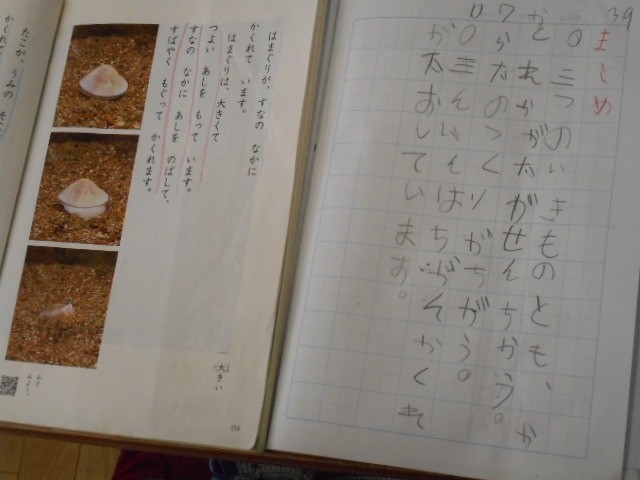 39
まとめ
○三つのいきものとも、か
かとれかが太がせんちかう。
か太のつくりがちがう。
○三んいんはちがそかくれ
が太おいています。
はまぐりが、すなの なかに
かくれて います。
はまぐりは、大きくて
つよい あしを もって います。
すなの なかに あしを のばして、
すばやく もぐって かくれます。
大きい
みて
みよう
たこが、うみの
かくれて